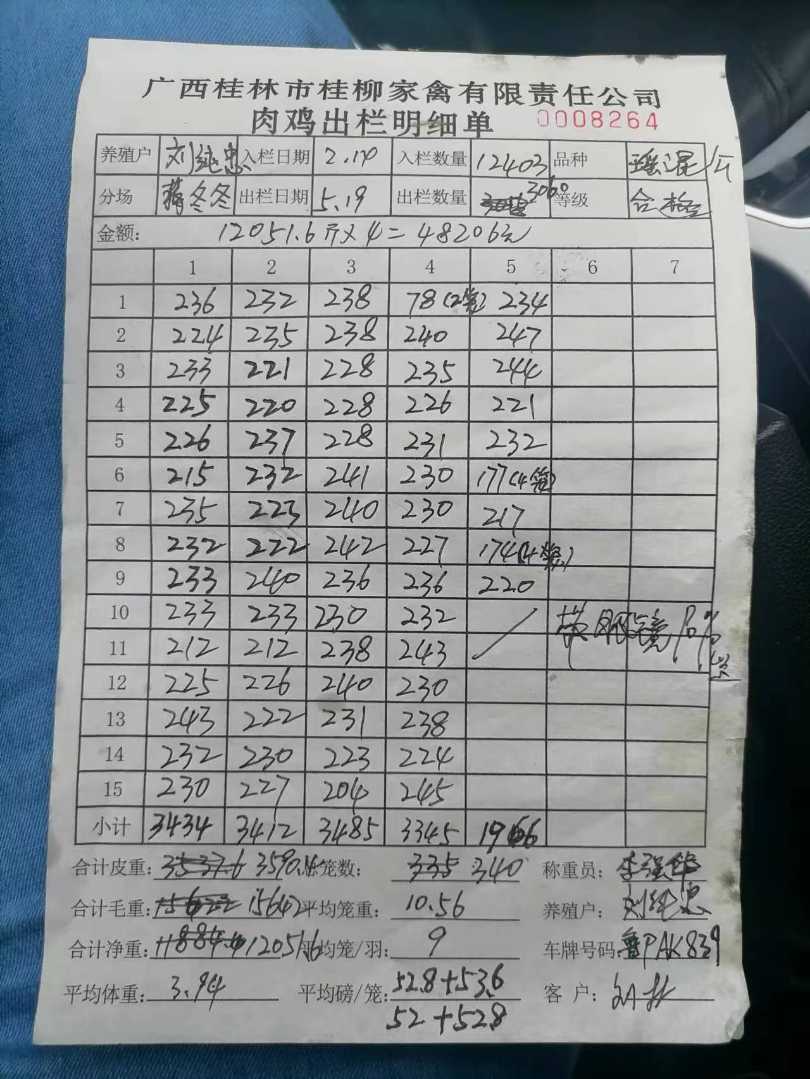 广西桂林市桂柳家禽有限责任公司
肉鸡出栏明细单 0008264
养殖户 刘纯忠 入栏日期 2.17 入栏数量 12403 品种
分场 蒋冬冬 出栏日期 5.19 出栏数量 3060 等级 合格
金额: 12051.6斤×4=48206元
1 2 3 4 5 6 7
1 236 232 238 78(2笼) 234
2 224 235 238 240 247
3 233 221 228 235 244
4 225 220 228 226 221
5 226 237 228 231 232
6 215 232 241 230 177(4笼)
7 235 223 240 230 217
8 232 222 242 227 174(4笼)
9 233 240 236 236 220
10 233 233 230 232
11 212 212 238 243
12 225 226 240 230
13 243 222 231 238
14 232 230 223 224
15 230 227 204 245
小计 3434 3412 3485 3345 1966
合计皮重: 3590.4 笼数: 335 340 称重员: 李强华
合计毛重: 15642 平均笼重: 10.56 养殖户: 刘纯忠
合计净重: 11884.4 12051.6 平均笼/羽: 9 车牌号码: 鲁PAK839
平均体重: 3.94 平均磅/笼: 52.8+53.6 客户:
52+52.8